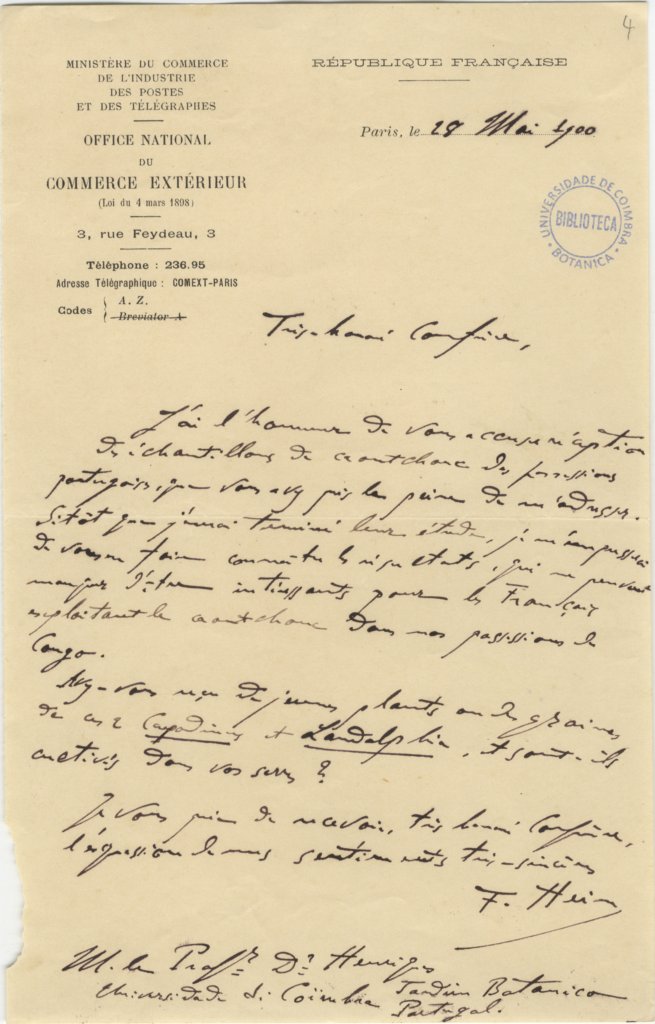 4
MINISTÈRE DU COMMERCE
DE L'INDUSTRIE
DES POSTES
ET DES TÉLÉGRAPHES
OFFICE NATIONAL
DU
COMMERCE EXTÉRIEUR
(Loi du 4 mars 1898)
3, rue Feydeau, 3
Téléphone : 236.95
Adresse Télégraphique : COMEXT-PARIS
Codes { A. Z.
Breviator A
RÉPUBLIQUE FRANÇAISE
Paris, le 28 Mai 1900
UNIVERSIDADE DE COIMBRA
BIBLIOTECA
BOTANICA
Très-honoré Confrère,
J'ai l'honneur de vous accuser réception
des échantillons de caoutchouc des possessions
portugaises, que vous avez pris la peine de m'adresser.
Sitôt que j'aurai terminé leur étude, je m'empresserai
de vous en faire connaître les résultats, qui ne peuvent
manquer d'être intéressants pour les Français
exploitant le caoutchouc dans nos possessions du
Congo.
Avez-vous reçu de jeunes plants ou des graines
de ces 2 et Landolphia, et sont-ils
cultivés dans vos serres ?
Je vous prie de recevoir, très honoré Confrère,
l'expression de mes sentiments très-sincères
F. Heim
M. le Profr Dr Henriques
Jardim Botanico
Universidade di Coïmbra
Portugal.